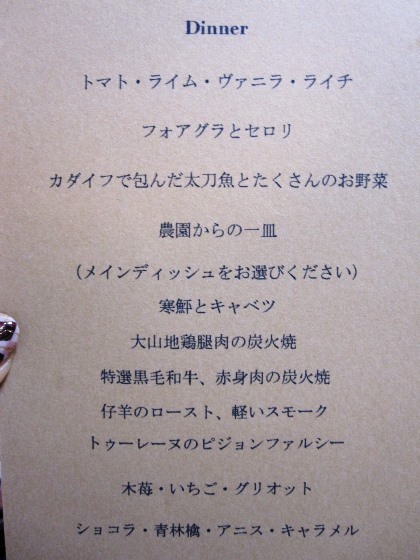 Dinner
トマト・ライム・ヴァニラ・ライチ
フォアグラとセロリ
カダイフで包んだ太刀魚とたくさんのお野菜
農園からの一皿
（メインディッシュをお選びください）
寒鮃とキャベツ
大山地鶏腿肉の炭火焼
特選黒毛和牛、赤身肉の炭火焼
仔羊のロースト、軽いスモーク
トゥーレーヌのピジョンファルシー
木苺・いちご・グリオット
ショコラ・青林檎・アニス・キャラメル